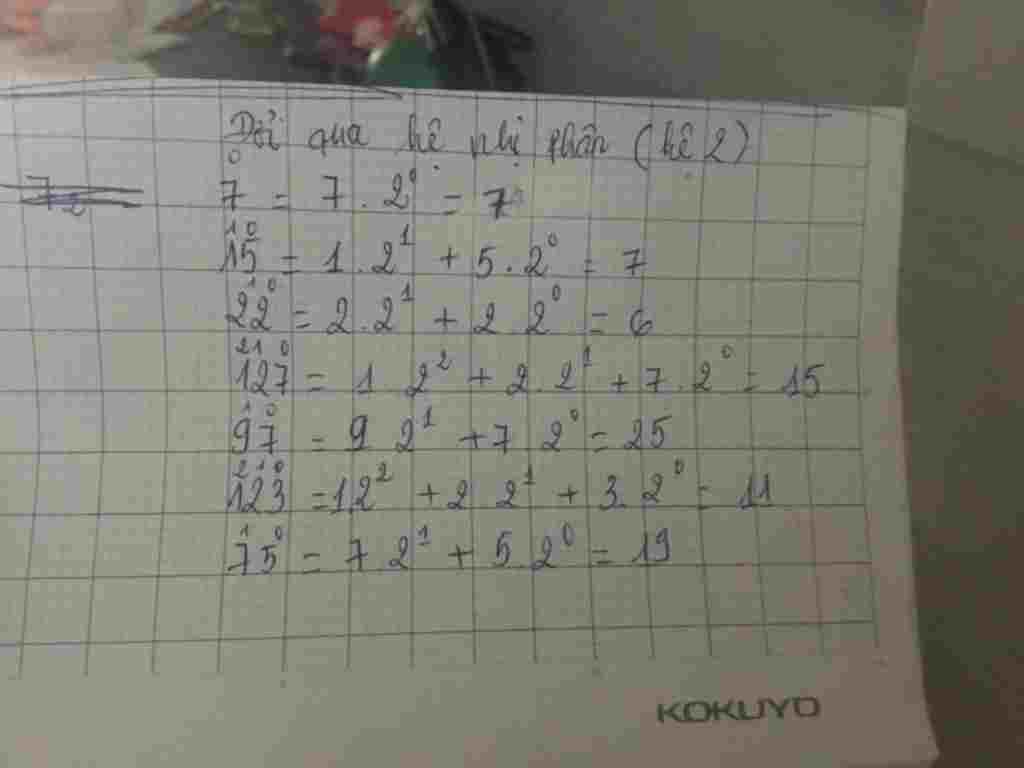 Đổi qua hệ nhị phân (hệ 2)
0
7 = 7 . 2⁰ = 7
1 0
15 = 1 . 2¹ + 5 . 2⁰ = 7
1 0
22 = 2 . 2¹ + 2 2⁰ = 6
2 1 0
127 = 1 2² + 2 . 2¹ + 7 . 2⁰ = 15
1 0
97 = 9 2¹ + 7 2⁰ = 25
2 1 0
123 = 1 2² + 2 2¹ + 3 . 2⁰ = 11
1 0
75 = 7 2¹ + 5 2⁰ = 19
KOKUYO